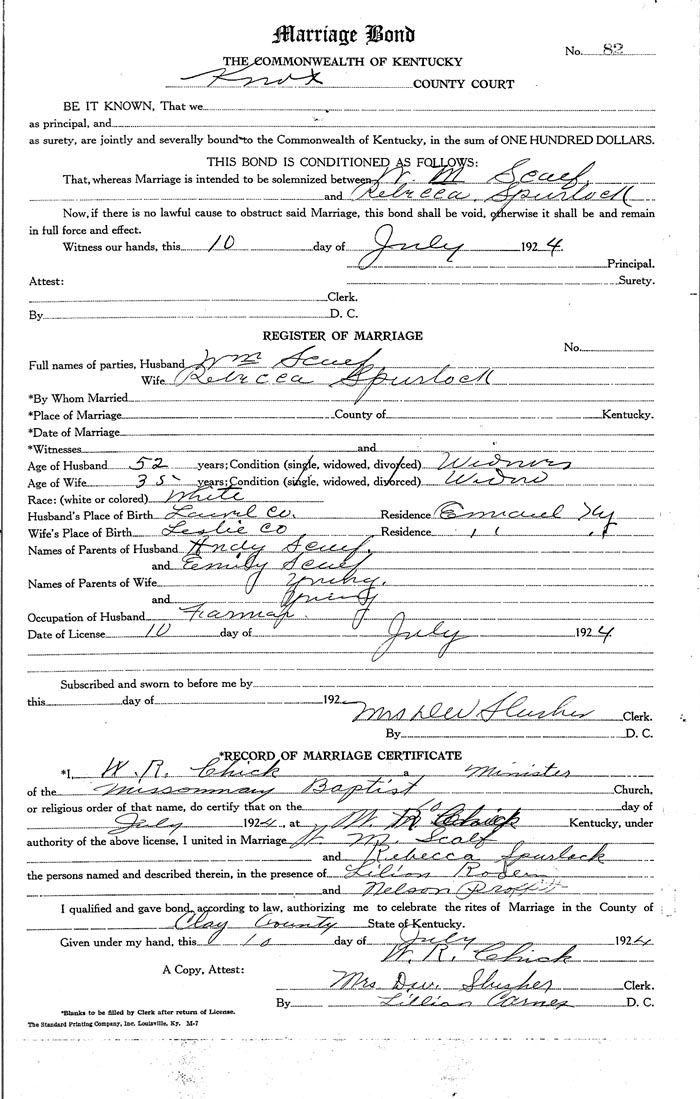 Marriage Bond
No. 82
THE COMMONWEALTH OF KENTUCKY
Knox COUNTY COURT
BE IT KNOWN, That we
as principal, and
as surety, are jointly and severally bound to the Commonwealth of Kentucky, in the sum of ONE HUNDRED DOLLARS.
THIS BOND IS CONDITIONED AS FOLLOWS:
That, whereas Marriage is intended to be solemnized between W M Scalf
and Rebecca Spurlock
Now, if there is no lawful cause to obstruct said Marriage, this bond shall be void, otherwise it shall be and remain
in full force and effect.
Witness our hands, this 10 day of July 1924.
Principal.
Attest: Surety.
Clerk.
By D. C.
REGISTER OF MARRIAGE
No.
Full names of parties, Husband Wm Scalf
Wife Rebecca Spurlock
*By Whom Married
*Place of Marriage County of Kentucky.
*Date of Marriage
*Witnesses and
Age of Husband 52 years; Condition (single, widowed, divorced)
Age of Wife 35 years; Condition (single, widowed, divorced)
Race: (white or colored) White
Husband's Place of Birth Laurel Co. Residence Emanuel Ky
Wife's Place of Birth Leslie Co Residence " "
Names of Parents of Husband Andy Scalf
and Emily Scalf
Names of Parents of Wife
and
Occupation of Husband Farmer
Date of License 10 day of July 1924
Subscribed and sworn to before me by
this day of 192
Mrs Dew Slusher Clerk.
By D. C.
*RECORD OF MARRIAGE CERTIFICATE
*I, W. R. Chick a Minister
of the Missonnary Baptist Church,
or religious order of that name, do certify that on the 10 day of
July 1924, at Kentucky, under
authority of the above license, I united in Marriage W. M. Scalf
and Rebecca Spurlock
the persons named and described therein, in the presence of Lilion
and Nelson
I qualified and gave bond, according to law, authorizing me to celebrate the rites of Marriage in the County of
Clay County State of Kentucky.
Given under my hand, this 10 day of July 1924
W. R. Chick
A Copy, Attest:
Mrs Dew. Slusher Clerk.
By Lillian Carnes D. C.
*Blanks to be filled by Clerk after return of License.
The Standard Printing Company, Inc. Louisville, Ky. M-7